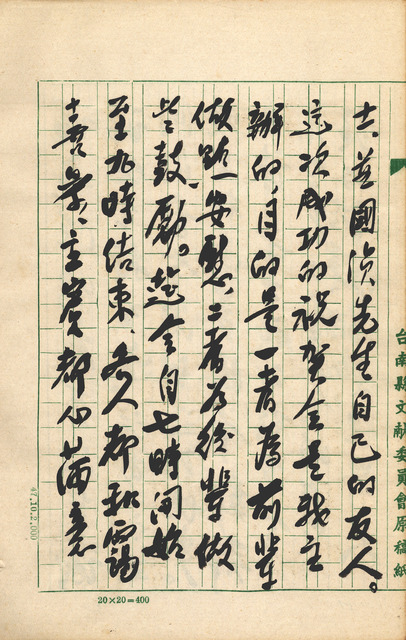 士、並國演先生自己的友人。
這次成功的祝賀会是我主
辦的、目的是一者為前輩
做點安慰、二者為後輩做
些鼓勵。筵会自七時開始
至九時結束、各人都和靄
喜景、主賓都心滿意
台南縣文献委員會原稿紙
47.10.2,000
20×20=400